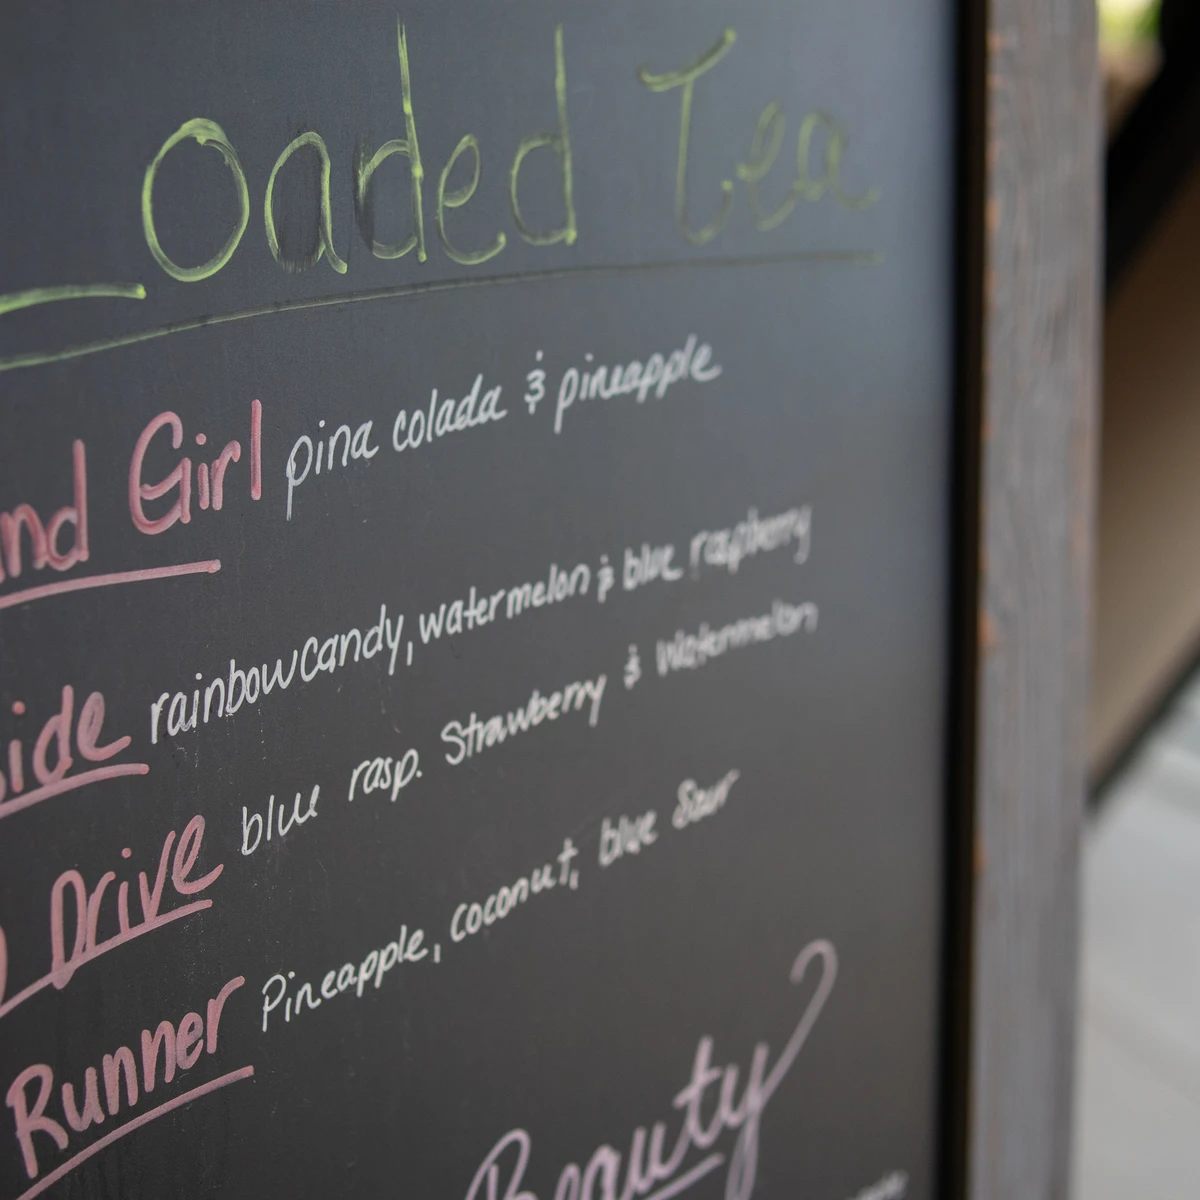 Loaded Tea
nd Girl pina colada & pineapple
side rainbow candy, watermelon & blue raspberry
Drive blue rasp. Strawberry & Watermelon
Runner Pineapple, coconut, blue Sour
Beauty